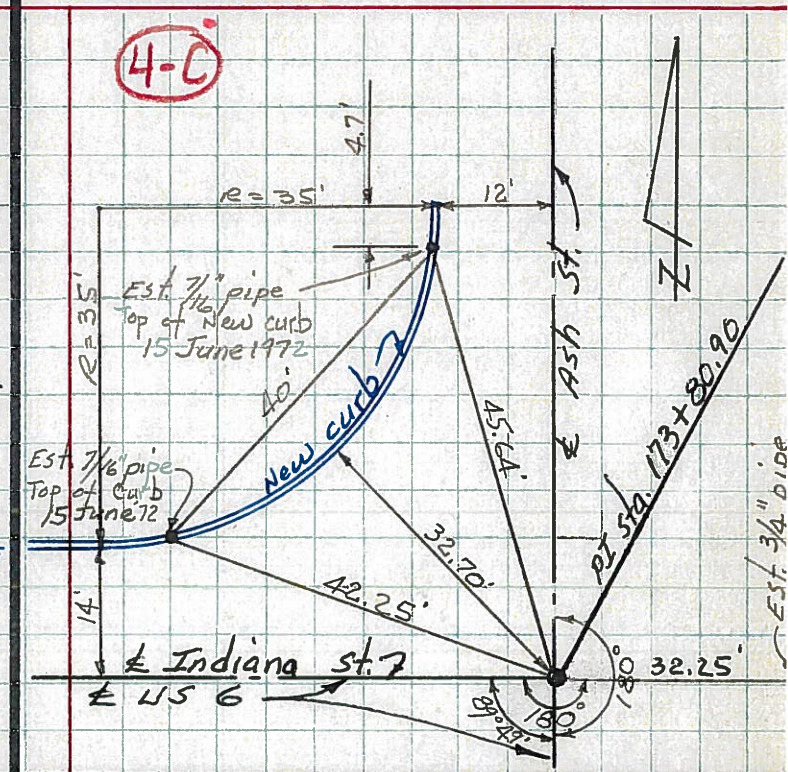 4-C
4.7'
R = 35'
12'
Est. 7/16" pipe
Top of New curb
15 June 1972
R = 35'
40'
New curb
45.64'
℄ Ash St.
Z
PI Sta. 173+80.90
Est. 7/16" pipe
Top of Curb
15 June '72
32.70'
42.25'
14'
℄ Indiana St.
℄ US 6
32.25'
180°
180°
89°49'
Est. 3/4" pipe